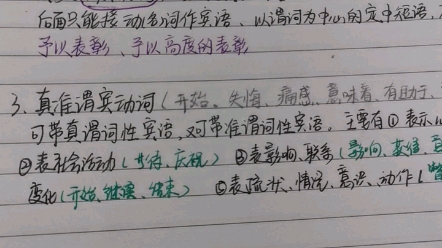 后面只能接动名词作宾语、以谓词为中心的定中短语,
予以表彰、予以高度的表彰
3、真准谓宾动词(开始、失悔、痛感、意味着、有助于、
可带真谓词性宾语,又可带准谓词性宾语。主要有①表示
②表社会活动(优待、庆祝) ③表影响、联系(影响、
变化(开始、继续、结束) ⑥表症状、情况、意识、动作(